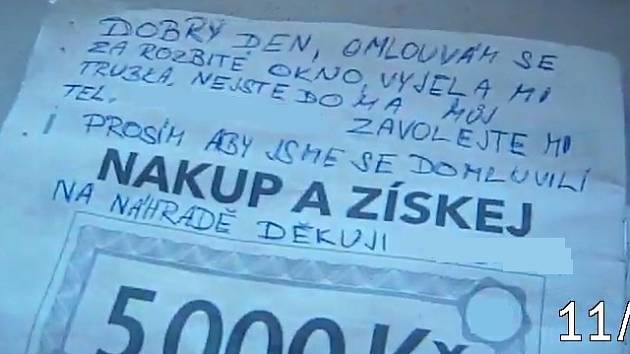 DOBRÝ DEN, OMLOUVÁM SE
ZA ROZBITÉ OKNO VYJELA MI
TRUBKA. NEJSTE DOMA MŮJ
TEL. ZAVOLEJTE MI
PROSÍM ABY JSME SE DOMLUVILI
NAKUP A ZÍSKEJ
NA NÁHRADĚ DĚKUJI
5 000 Kč
11/